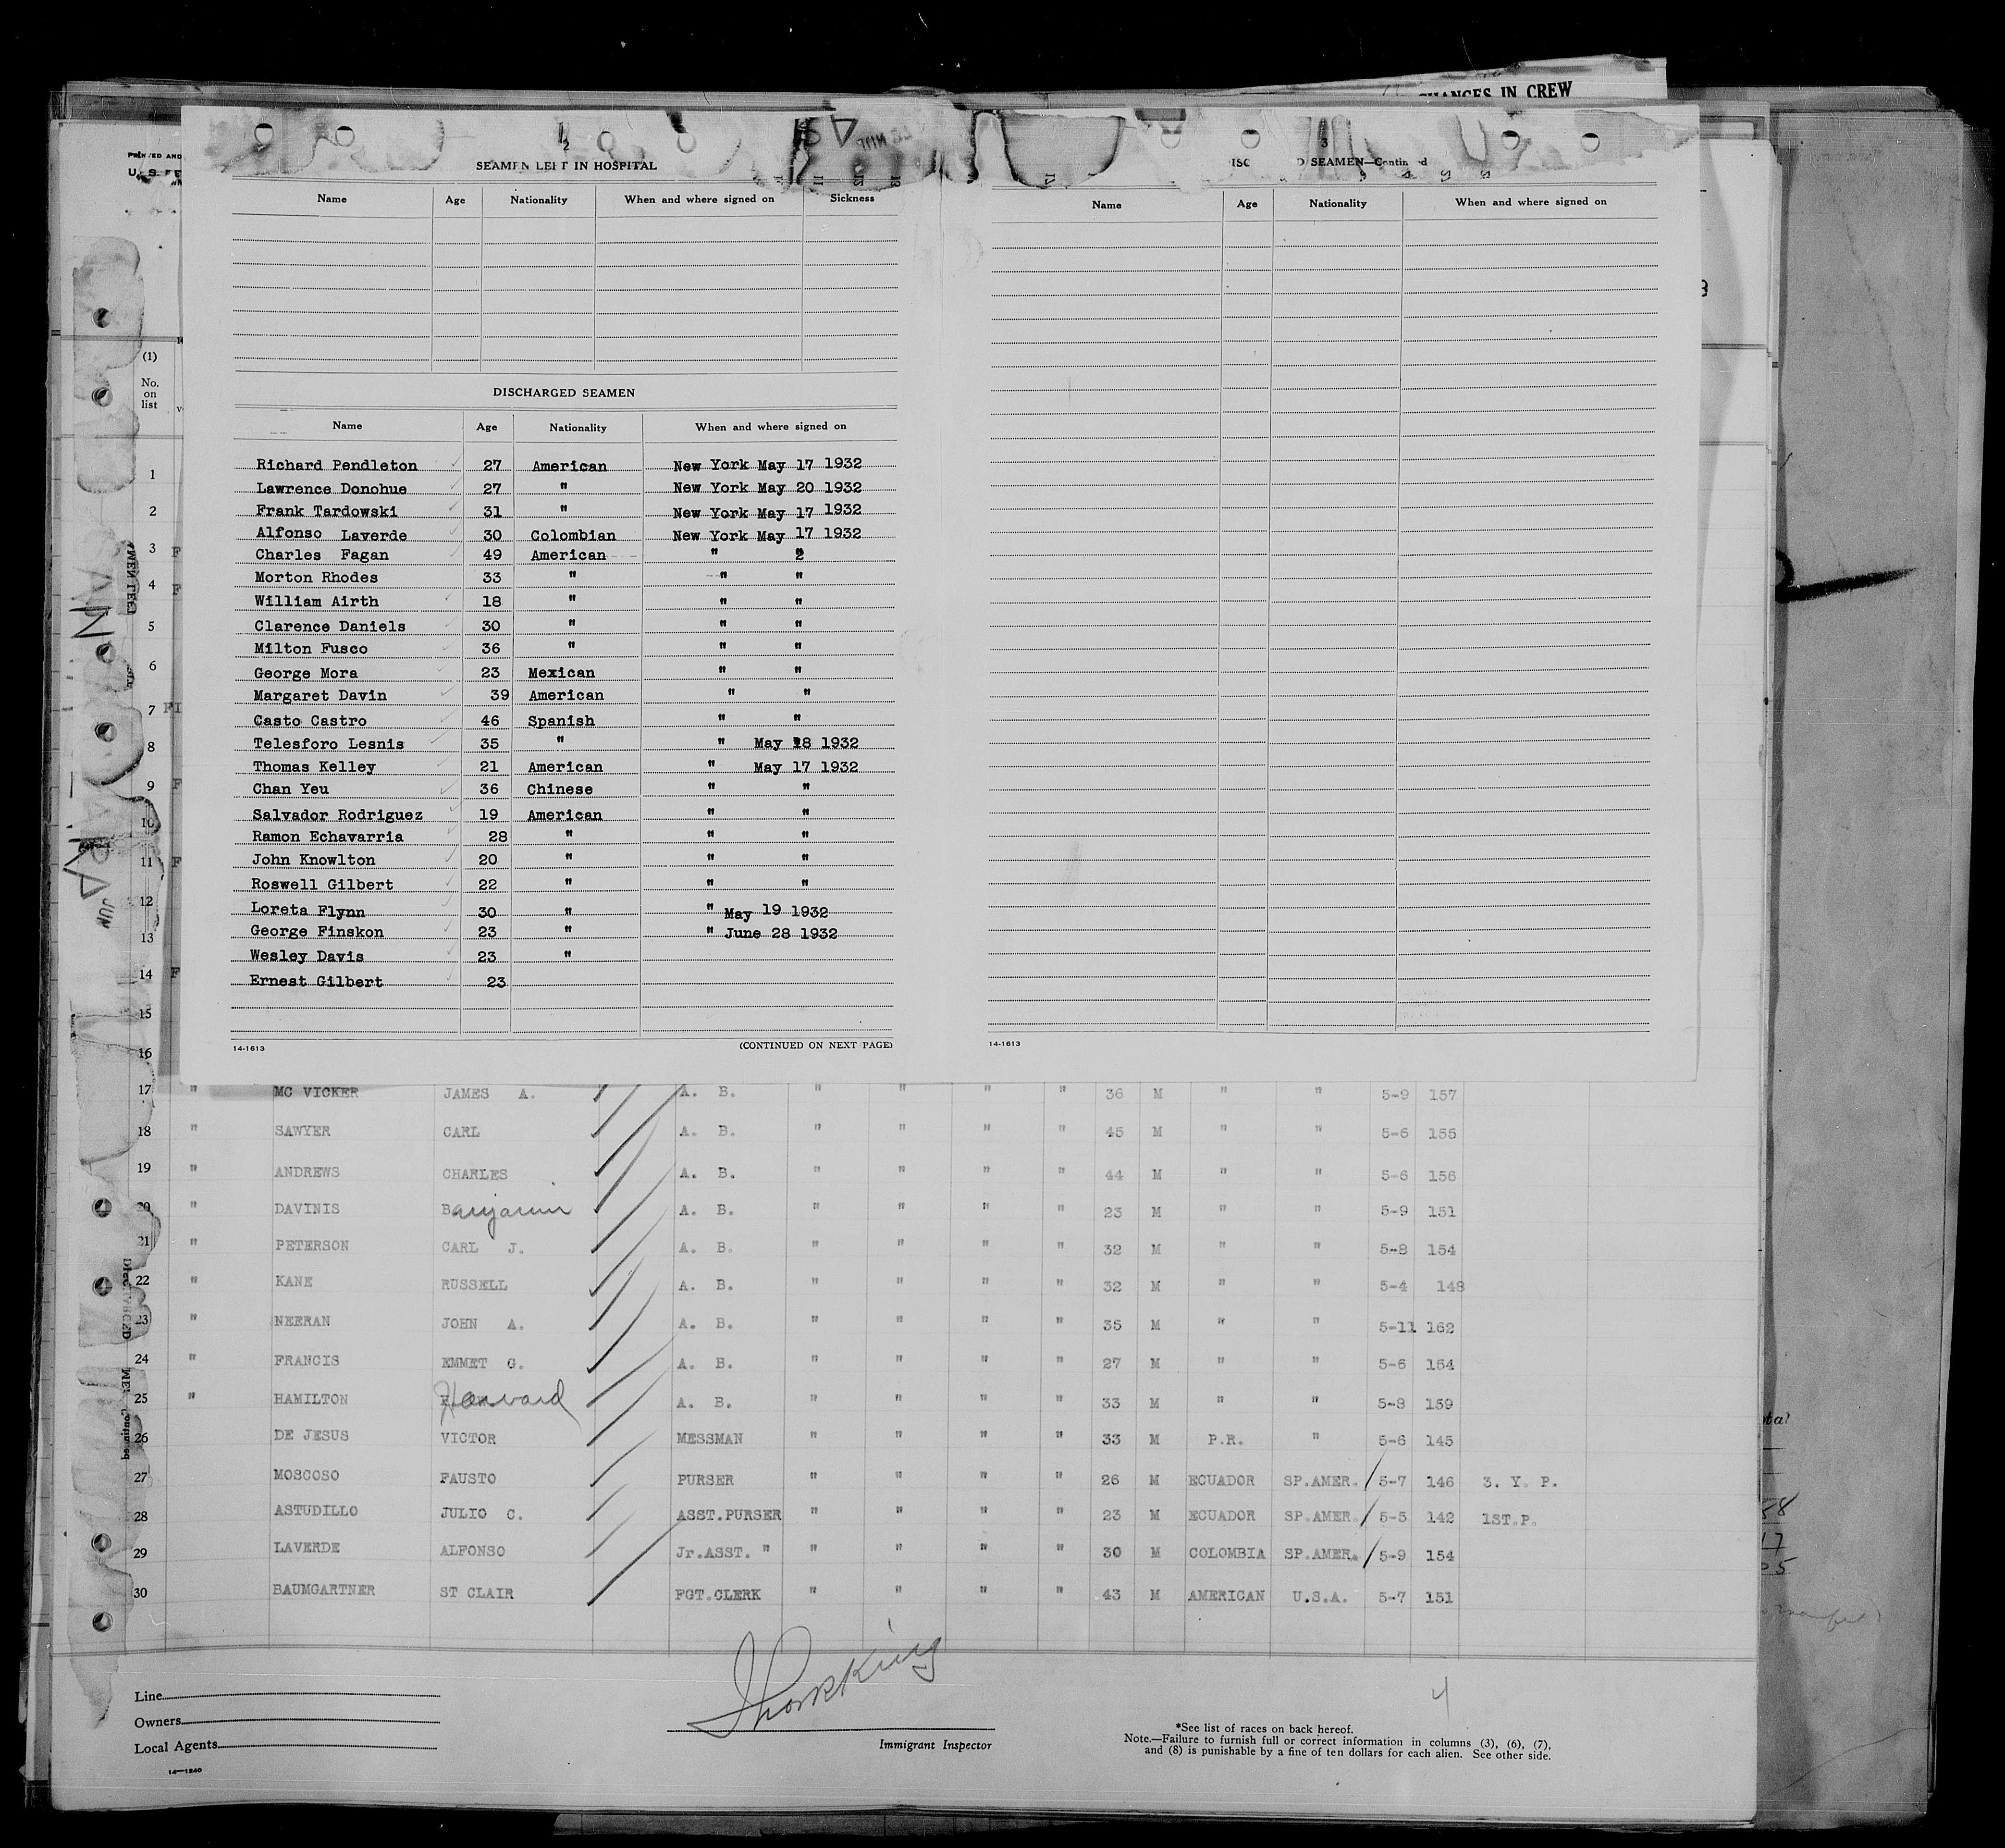 CHANGES IN CREW
PRINTED AND
2
SEAMEN LEFT IN HOSPITAL
Name Age Nationality When and where signed on Sickness
DISCHARGED SEAMEN
Name Age Nationality When and where signed on
Richard Pendleton 27 American New York May 17 1932
Lawrence Donohue 27 " New York May 20 1932
Frank Tardowski 31 " New York May 17 1932
Alfonso Laverde 30 Colombian New York May 17 1932
Charles Fagan 49 American " "
Morton Rhodes 33 " " "
William Airth 18 " " "
Clarence Daniels 30 " " "
Milton Fusco 36 " " "
George Mora 23 Mexican " "
Margaret Davin 39 American " "
Casto Castro 46 Spanish " "
Telesforo Lesnis 35 " " May 18 1932
Thomas Kelley 21 American " May 17 1932
Chan Yeu 36 Chinese " "
Salvador Rodriguez 19 American " "
Ramon Echavarria 28 " " "
John Knowlton 20 " " "
Roswell Gilbert 22 " " "
Loreta Flynn 30 " " May 19 1932
George Finskon 23 " " June 28 1932
Wesley Davis 23 "
Ernest Gilbert 23
14-1613 (CONTINUED ON NEXT PAGE)
3
D SEAMEN—Continued
Name Age Nationality When and where signed on
14-1613
(1)
No.
on
list
1
2
3 F
4 F
5
6
7 FI
8
9 F
10
11 F
12
13
14 F
15
16
17 " MC VICKER JAMES A. A. B. " " " " 36 M " " 5-9 157
18 " SAWYER CARL A. B. " " " " 45 M " " 5-6 155
19 " ANDREWS CHARLES A. B. " " " " 44 M " " 5-6 156
20 " DAVINIS Benjamin A. B. " " " " 23 M " " 5-9 151
21 " PETERSON CARL J. A. B. " " " " 32 M " " 5-8 154
22 " KANE RUSSELL A. B. " " " " 32 M " " 5-4 148
23 " NEERAN JOHN A. A. B. " " " " 35 M " " 5-11 162
24 " FRANCIS EMMET G. A. B. " " " " 27 M " " 5-6 154
25 " HAMILTON Harvard A. B. " " " " 33 M " " 5-8 159
26 DE JESUS VICTOR MESSMAN " " " " 33 M P.R. " 5-6 145
27 MOSCOSO FAUSTO PURSER " " " " 26 M ECUADOR SP.AMER. 5-7 146 3. Y. P.
28 ASTUDILLO JULIO C. ASST.PURSER " " " " 23 M ECUADOR SP.AMER. 5-5 142 1ST.P.
29 LAVERDE ALFONSO Jr.ASST. " " " " " 30 M COLOMBIA SP.AMER. 5-9 154
30 BAUMGARTNER ST CLAIR FGT.CLERK " " " " 43 M AMERICAN U.S.A. 5-7 151
4
Line
Owners
Local Agents
14—1240
Immigrant Inspector
*See list of races on back hereof.
Note.—Failure to furnish full or correct information in columns (3), (6), (7),
and (8) is punishable by a fine of ten dollars for each alien. See other side.
SANTA CLARA JUN